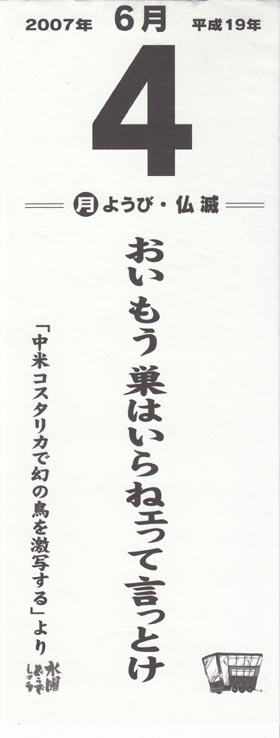 2007年 6月 平成19年
4
月ようび・仏滅
おい もう 巣はいらねェって言っとけ
「中米コスタリカで幻の鳥を激写する」より
水曜どうでしょう